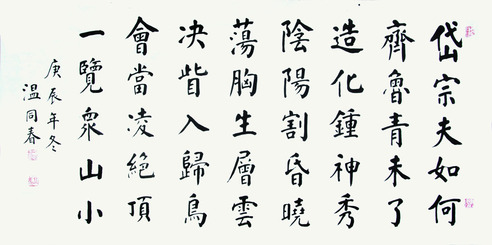 岱宗夫如何
齊魯青未了
造化鍾神秀
陰陽割昏曉
蕩胸生層雲
決眥入歸鳥
會當凌絕頂
一覽衆山小
庚辰年冬
溫同春